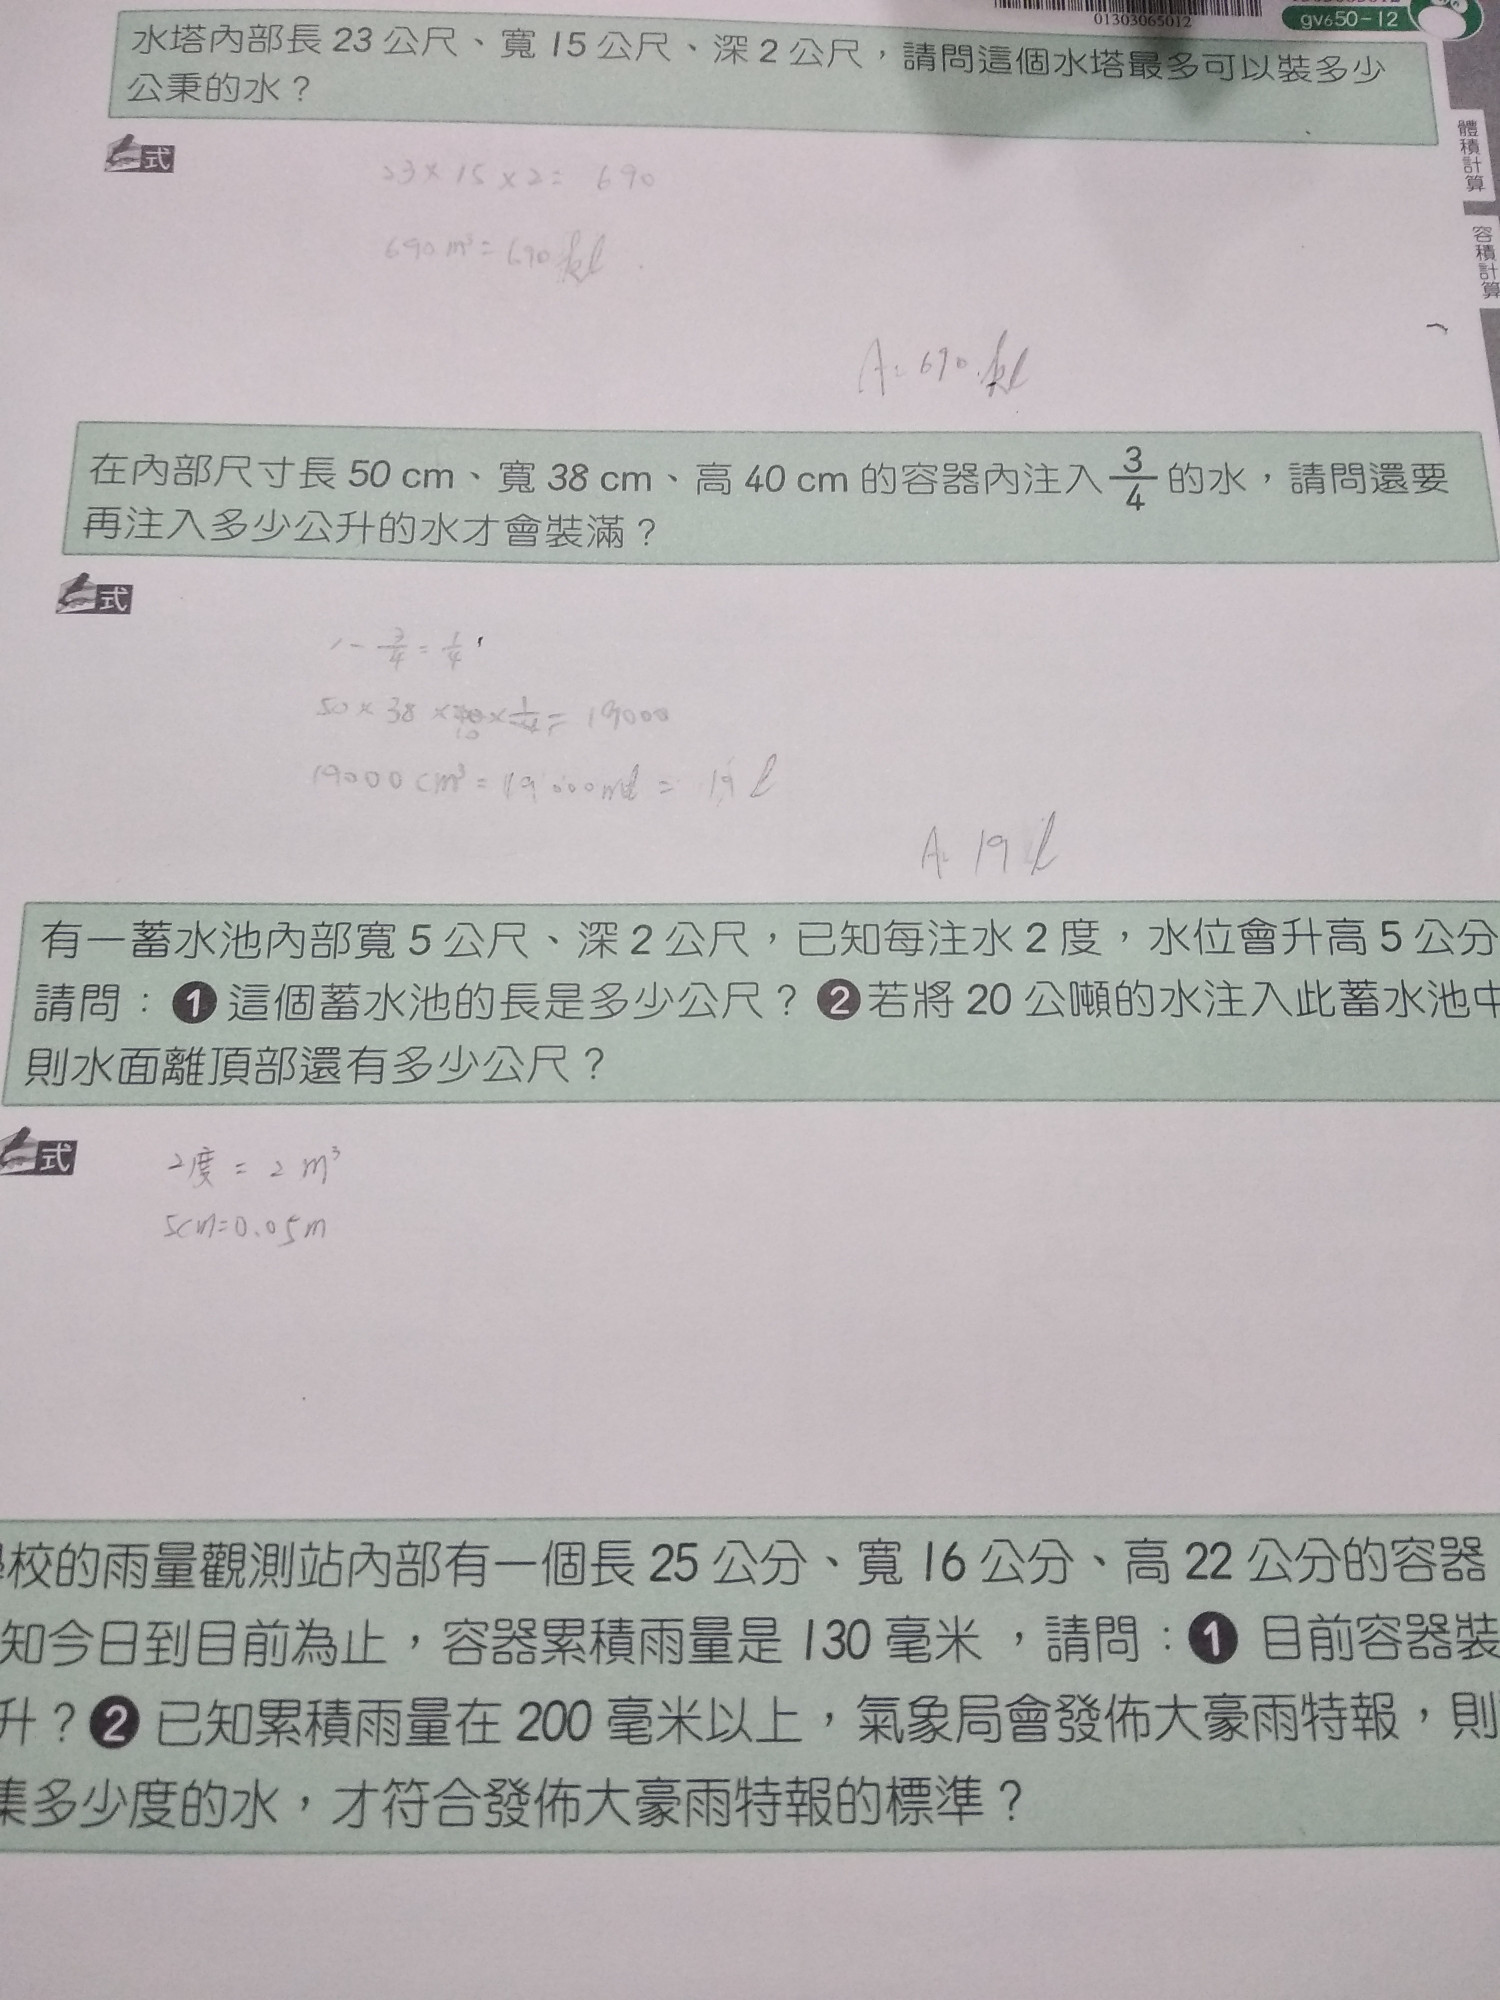 01303065012
gv650-12
水塔內部長 23 公尺、寬 15 公尺、深 2 公尺，請問這個水塔最多可以裝多少
公秉的水？
體積計算
容積計算
式
23 × 15 × 2 = 690
690 m³ = 690 kl
A: 690 kl
在內部尺寸長 50 cm、寬 38 cm、高 40 cm 的容器內注入 3/4 的水，請問還要
再注入多少公升的水才會裝滿？
式
1 - 3/4 = 1/4
50 × 38 × 40 × 1/4 = 19000
10
19000 cm³ = 19000 ml = 19 l
A: 19 l
有一蓄水池內部寬 5 公尺、深 2 公尺，已知每注水 2 度，水位會升高 5 公分
請問：❶ 這個蓄水池的長是多少公尺？❷ 若將 20 公噸的水注入此蓄水池中
則水面離頂部還有多少公尺？
式
2度 = 2 m³
5cm=0.05m
校的雨量觀測站內部有一個長 25 公分、寬 16 公分、高 22 公分的容器
知今日到目前為止，容器累積雨量是 130 毫米，請問：❶ 目前容器裝
升？❷ 已知累積雨量在 200 毫米以上，氣象局會發佈大豪雨特報，則
集多少度的水，才符合發佈大豪雨特報的標準？